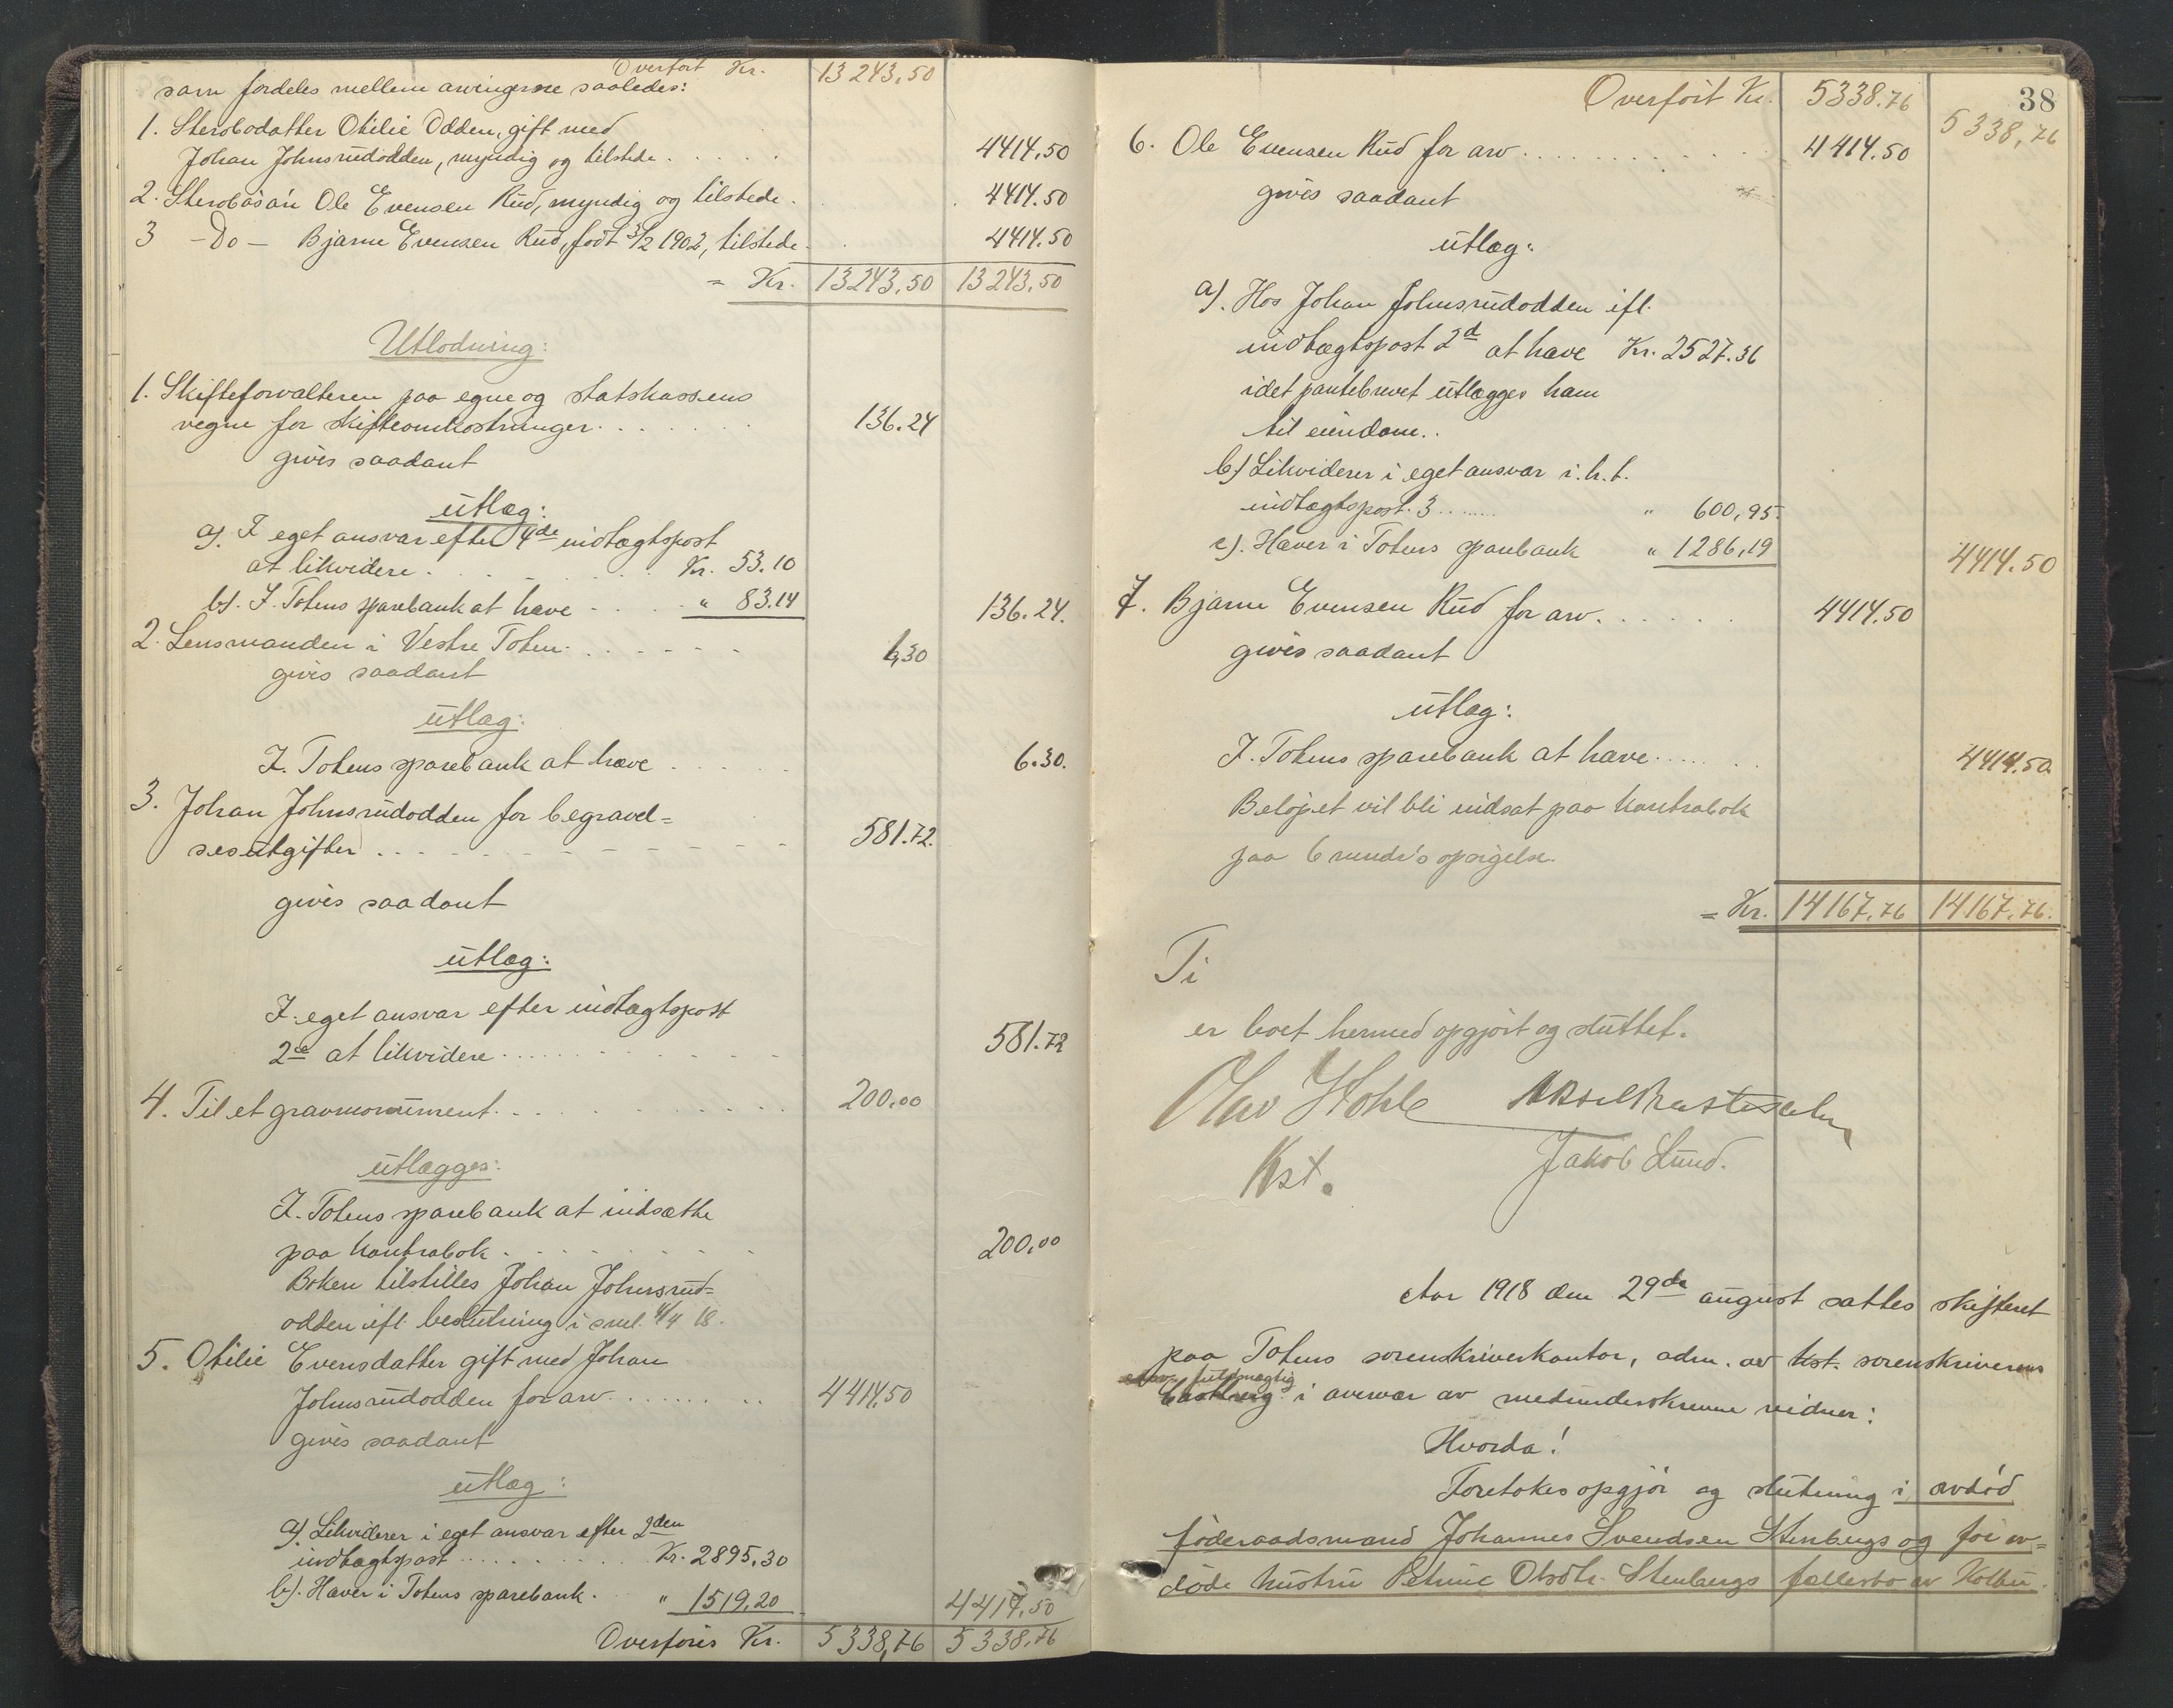 Overført Kr. 13243,50
som fordeles mellem arvingerne saaledes:
1. Stervbodatter Otilie Odden, gift med
Johan Johnsrudodden, myndig og tilstede . . . . . 4414.50
2. Stervbosøn Ole Evensen Rud, myndig og tilstede . 4414.50
3 - Do - Bjarne Evensen Rud, født 3/2 1902, tilstede . 4414.50
= Kr. 13243,50 13243,50
Utlodning:
1. Skifteforvalteren paa egne og statskassens
vegne for skifteomkostninger . . . . . . 136.24
givis saadant
utlæg:
a). I eget ansvar efter 4de indtægtspost
at likvidere . . . . . . Kr. 53.10
b). I Totens sparebank at hæve . . . . " 83.14 136.24.
2. Lensmanden i Vestre Toten . . . . . . 6,30
givis saadant
utlæg:
I Totens sparebank at hæve . . . . . 6.30.
3. Johan Johnsrudodden for begravel=
sesutgifter . . . . . . . . 581.72.
givis saadant
utlæg:
I eget ansvar efter indtægtspost
2ce at likvidere . . . . . . . . 581.72
4. Til et gravmonument . . . . . . . . 200,00
utlægges:
I Totens sparebank at indsætte
paa kontrabok . . . . . . . 200,00
Boken tilstilles Johan Johnsrud=
odden ifl. beslutning i sml. 4/4 18.
5. Otilie Evensdatter gift med Johan
Johnsrudodden for arv . . . . . . . 4414,50
givis saadant
utlæg:
a). Likviderer i eget ansvar efter 2den
indtægtspost . . . . . . . Kr. 2895,30
b). Hæver i Totens sparebank . " 1519,20 4414,50
Overføres Kr. 5338,76 5338,76
38
Overført Kr. 5338.76 5338,76
6. Ole Evensen Rud for arv . . . . . . . . 4414.50
givis saadant
utlæg:
a). Hos Johan Johnsrudodden ifl.
indtægtspost 2d at hæve Kr. 2527.36
idet pantebrevet utlægges ham
til eiendom..
b) Likviderer i eget ansvar i.h.t.
indtægtspost 3 . . . . " 600,95.
c). Hæver i Totens sparebank " 1286,19 4414.50
7. Bjarne Evensen Rud for arv . . . . . . 4414.50
givis saadant
utlæg:
I Totens sparebank at hæve . . . . . . 4414,50.
Beløpet vil bli indsat paa kontrabok
paa 6 mndr's opsigelse.
= Kr. 14167,76 14167,76.
Ti
er boet hermed opgjørt og sluttet.
Olav Kohle
Kst. Jakob Lund.
Aar 1918 den 29de august sattes skifteret
paa Totens sorenskriverkontor, adm. av kst. sorenskriverens
fuldmægtig
i overvær av medunderskrevne vidner:
Hvorda!
Foretokes opgjør og slutning i avdød
føderaadsmand Johannes Svendsen Stenbergs og før av=
døde hustru Petrine Olsdtr. Stenbergs fællesbo av Kolbu.